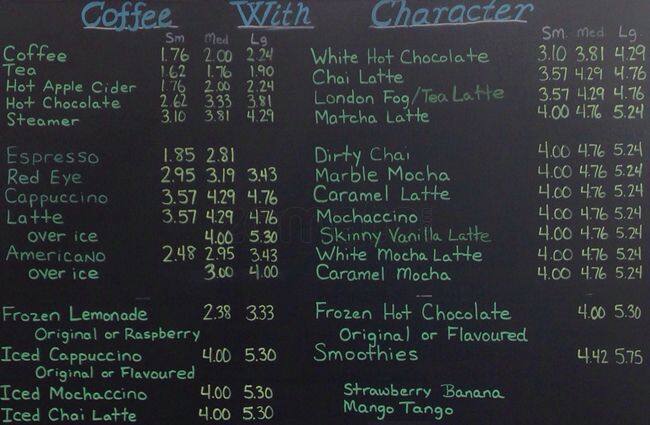 Coffee With Character
Sm Med Lg
Coffee 1.76 2.00 2.24
Tea 1.62 1.76 1.90
Hot Apple Cider 1.76 2.00 2.24
Hot Chocolate 2.62 3.33 3.81
Steamer 3.10 3.81 4.29
Espresso 1.85 2.81
Red Eye 2.95 3.19 3.43
Cappuccino 3.57 4.29 4.76
Latte 3.57 4.29 4.76
over ice 4.00 5.30
Americano 2.48 2.95 3.43
over ice 3.00 4.00
Frozen Lemonade 2.38 3.33
Original or Raspberry
Iced Cappuccino 4.00 5.30
Original or Flavoured
Iced Mochaccino 4.00 5.30
Iced Chai Latte 4.00 5.30
Sm. Med Lg.
White Hot Chocolate 3.10 3.81 4.29
Chai Latte 3.57 4.29 4.76
London Fog/Tea Latte 3.57 4.29 4.76
Matcha Latte 4.00 4.76 5.24
Dirty Chai 4.00 4.76 5.24
Marble Mocha 4.00 4.76 5.24
Caramel Latte 4.00 4.76 5.24
Mochaccino 4.00 4.76 5.24
Skinny Vanilla Latte 4.00 4.76 5.24
White Mocha Latte 4.00 4.76 5.24
Caramel Mocha 4.00 4.76 5.24
Frozen Hot Chocolate 4.00 5.30
Original or Flavoured
Smoothies 4.42 5.75
Strawberry Banana
Mango Tango